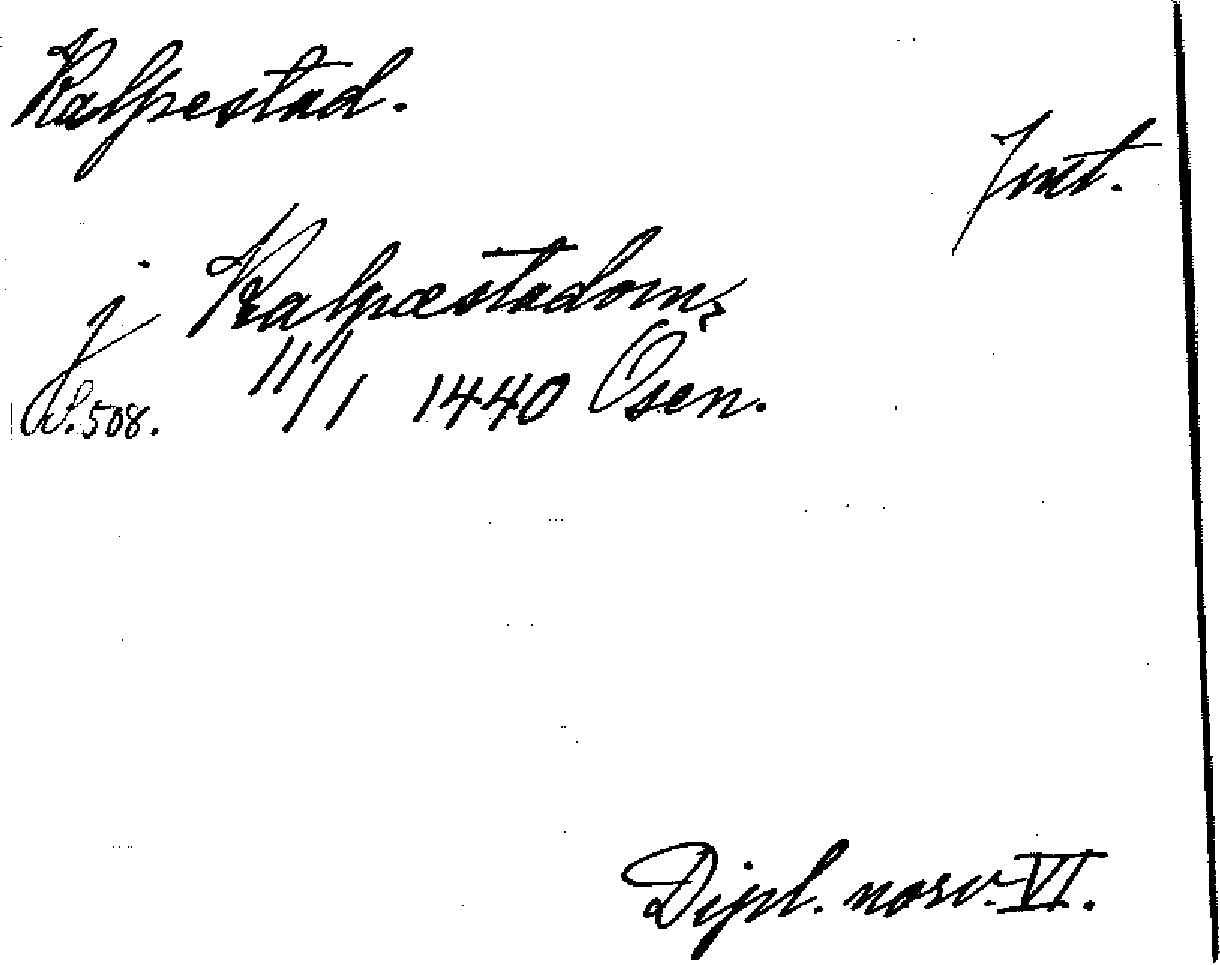 Kalpestad.
Jmt.
j Kalpæstadom,
11/1 1440 Osen.
S. 508.
Dipl. norv. VI.